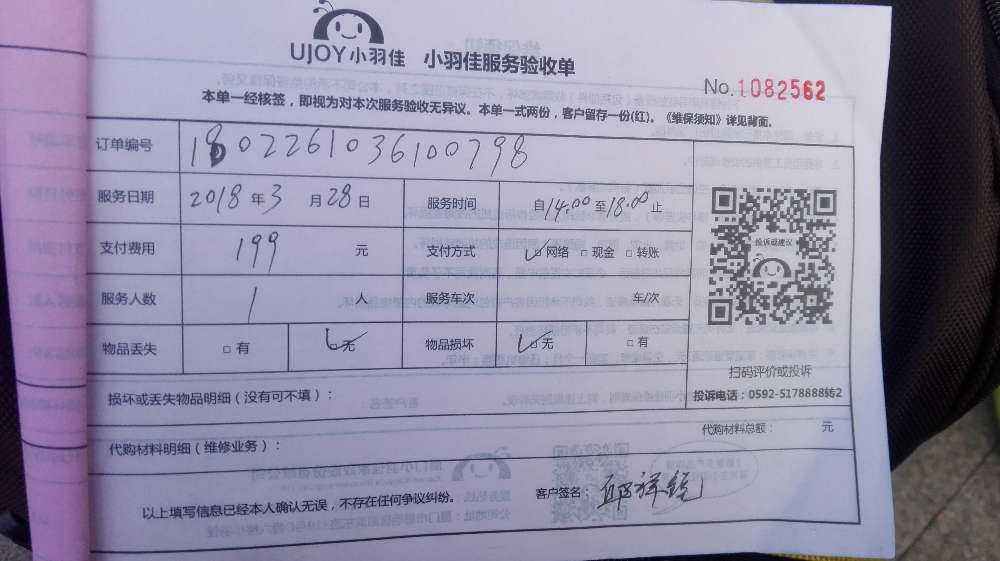 UJOY小羽佳 小羽佳服务验收单
No. 1082562
本单一经核签，即视为对本次服务验收无异议。本单一式两份，客户留存一份(红)。《维保须知》详见背面。
订单编号 1802261036100798
服务日期 2018 年 3 月 28 日 服务时间 自 14:00 至 18:00 止
支付费用 199 元 支付方式 ✓ □ 网络 □ 现金 □ 转账
服务人数 1 人 服务车次 车/次
物品丢失 □ 有 ✓ 无 物品损坏 ✓ □ 无 □ 有
投诉或建议
扫码评价或投诉
投诉电话：0592-5178888转2
损坏或丢失物品明细（没有可不填）：
代购材料明细（维修业务）： 代购材料总额： 元
以上填写信息已经本人确认无误，不存在任何争议纠纷。 客户签名：